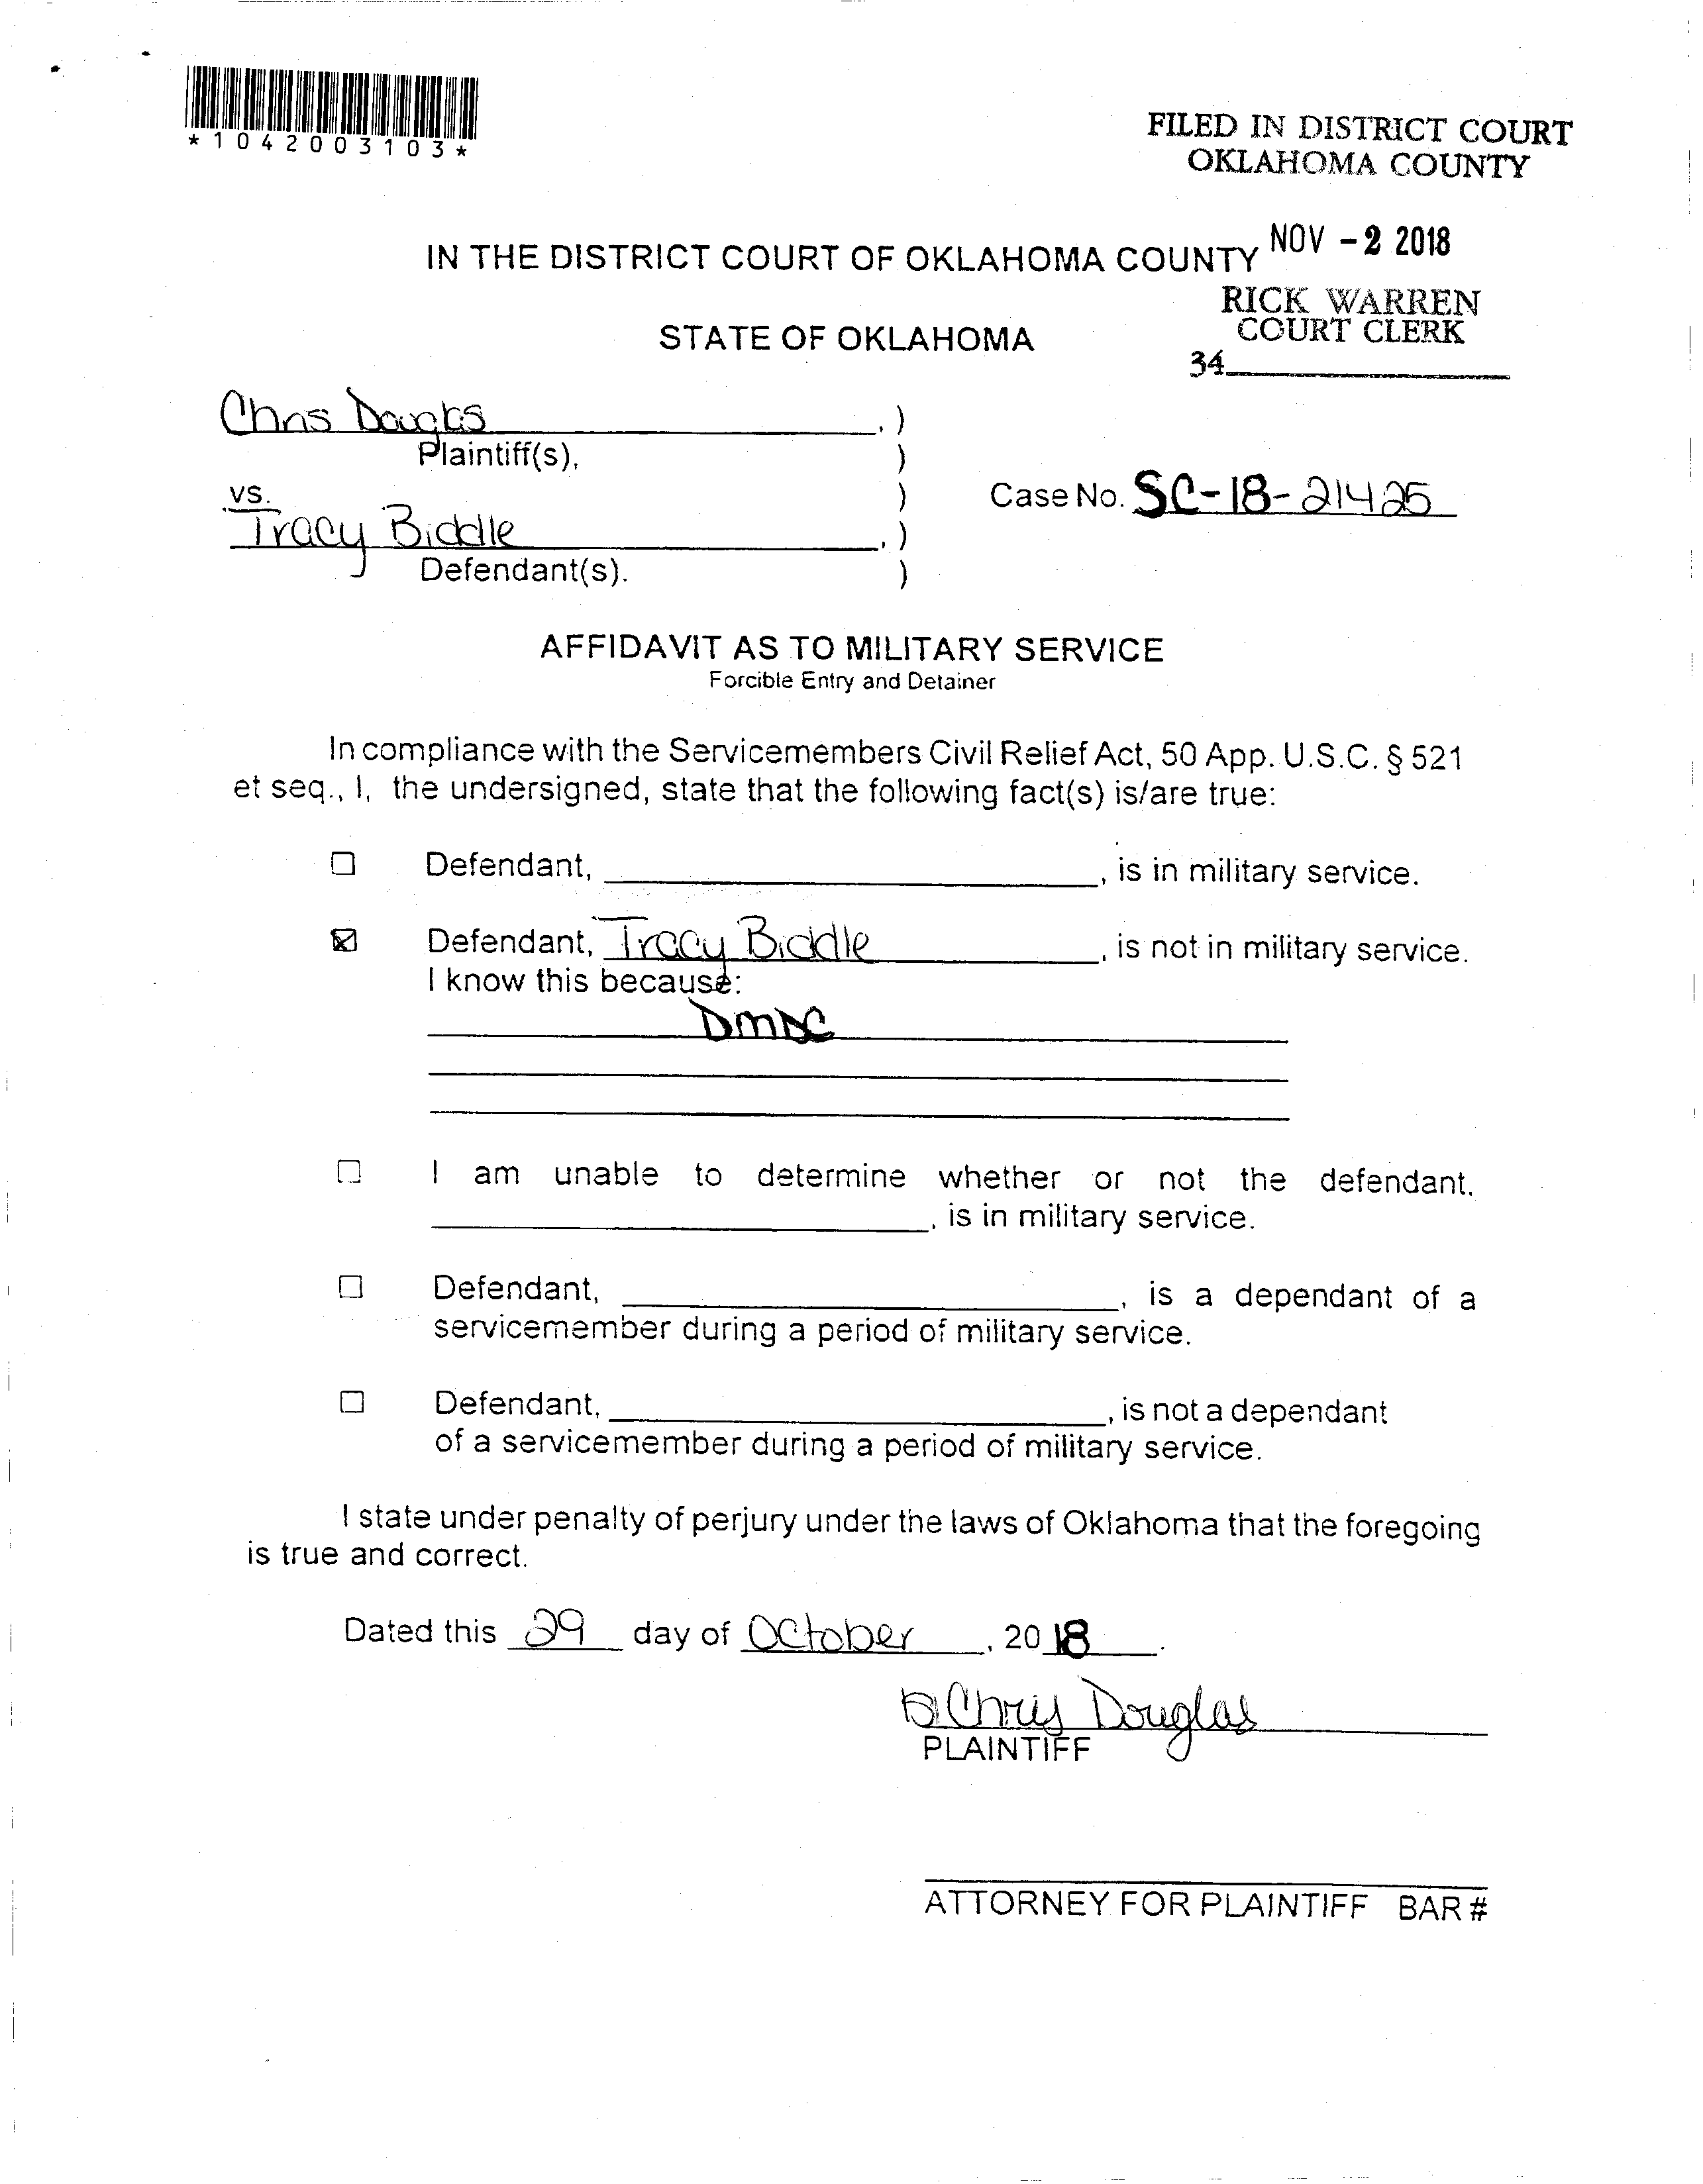 *1042003103*
FILED IN DISTRICT COURT
OKLAHOMA COUNTY
NOV - 2 2018
IN THE DISTRICT COURT OF OKLAHOMA COUNTY
RICK WARREN
COURT CLERK
STATE OF OKLAHOMA
34
Chris Douglas , )
Plaintiff(s), )
vs. )
Case No. SC-18-21425
Tracy Biddle , )
Defendant(s). )
AFFIDAVIT AS TO MILITARY SERVICE
Forcible Entry and Detainer
In compliance with the Servicemembers Civil Relief Act, 50 App. U.S.C. § 521
et seq., I, the undersigned, state that the following fact(s) is/are true:
☐ Defendant, , is in military service.
☒ Defendant, Tracy Biddle , is not in military service.
I know this because:
DMDC
☐ I am unable to determine whether or not the defendant,
, is in military service.
☐ Defendant, , is a dependant of a
servicemember during a period of military service.
☐ Defendant, , is not a dependant
of a servicemember during a period of military service.
I state under penalty of perjury under the laws of Oklahoma that the foregoing
is true and correct.
Dated this 29 day of October , 20 18 .
Chris Douglas
PLAINTIFF
ATTORNEY FOR PLAINTIFF BAR #